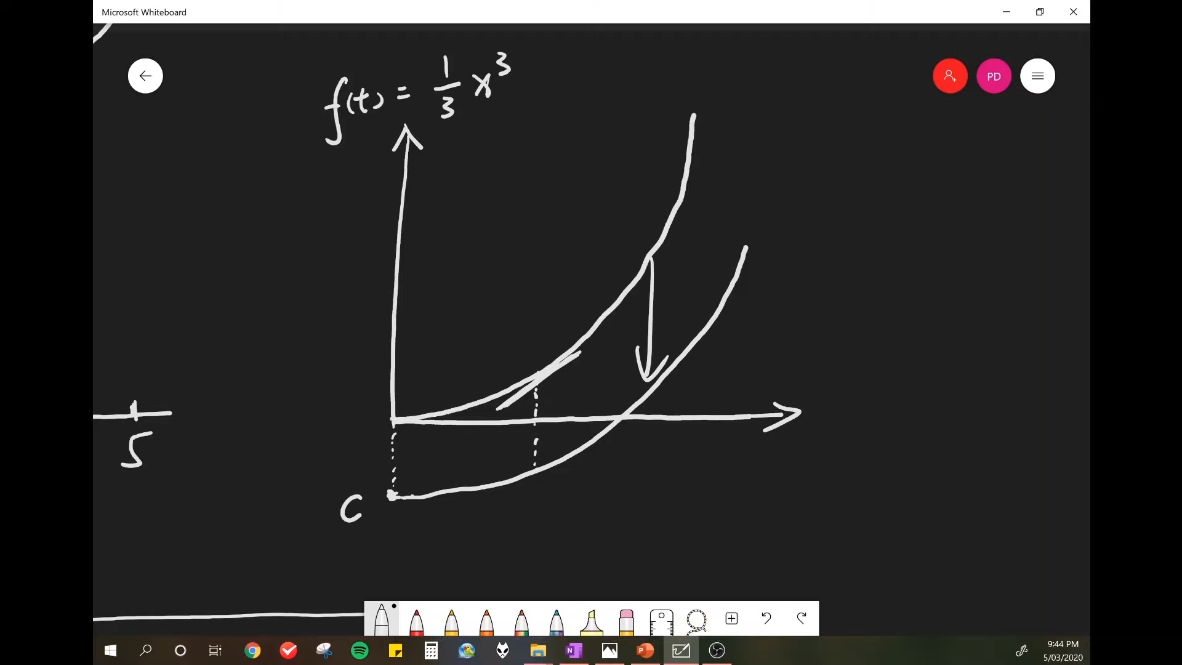 Microsoft Whiteboard
f(t) = 1/3 x^3
PD
5
C
9:44 PM
5/03/2020